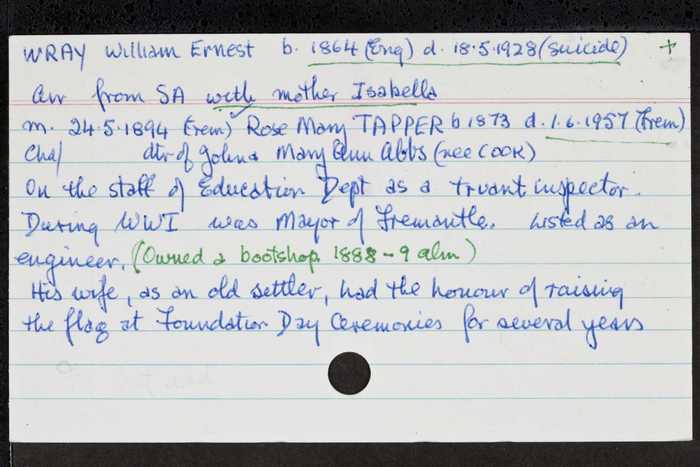 WRAY William Ernest b. 1864 (Eng) d. 18.5.1928 (suicide) +
Arr from SA with mother Isabella
m. 24.5.1894 (Frem) Rose Mary TAPPER b 1873 d. 1.6.1957 (Frem)
Chd/ dtr of John & Mary Ann Abbs (nee COOK)
On the staff of Education Dept as a truant inspector.
During WWI was Mayor of Fremantle. Listed as an
engineer. (Owned a bootshop 1888-9 alm)
His wife, as an old settler, had the honour of raising
the flag at Foundation Day Ceremonies for several years